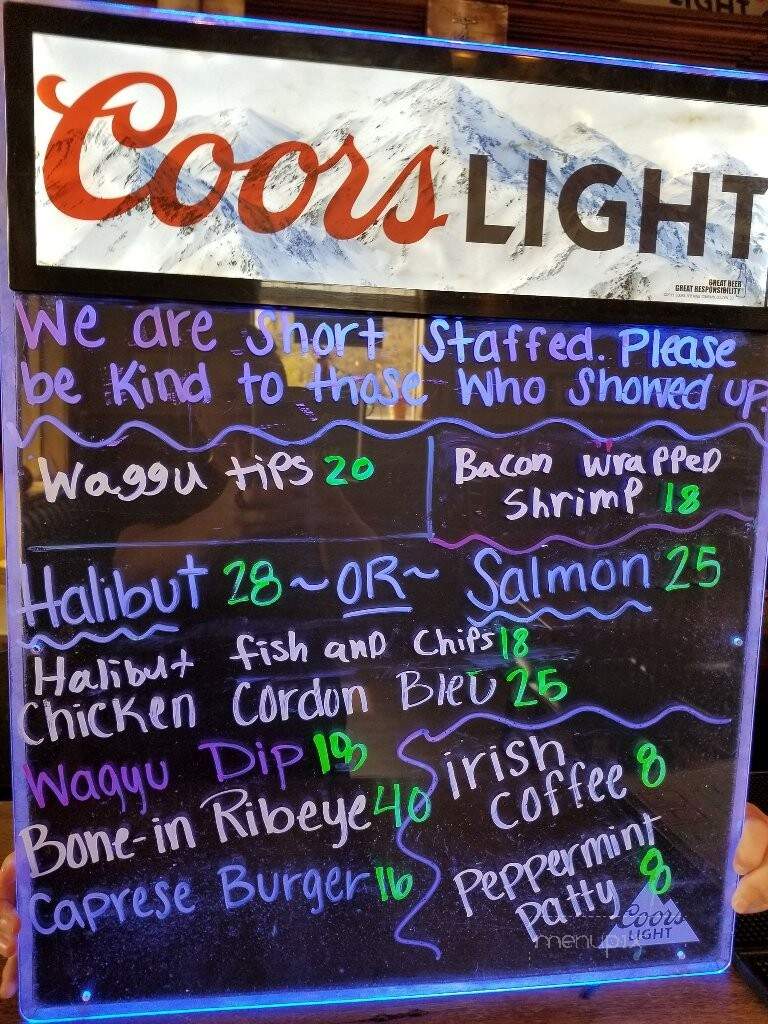 LIGHT
Coors LIGHT
GREAT BEER
GREAT RESPONSIBILITY
We are Short Staffed. Please
be Kind to those Who Showed up.
Waggu tips 20
Bacon wrapped
Shrimp 18
Halibut 28 ~OR~ Salmon 25
Halibut fish and Chips 18
Chicken Cordon Bleu 25
Wagyu Dip
Bone-in Ribeye 40
Caprese Burger 16
irish
coffee 8
Peppermint
patty 8
Coors
LIGHT
menupix